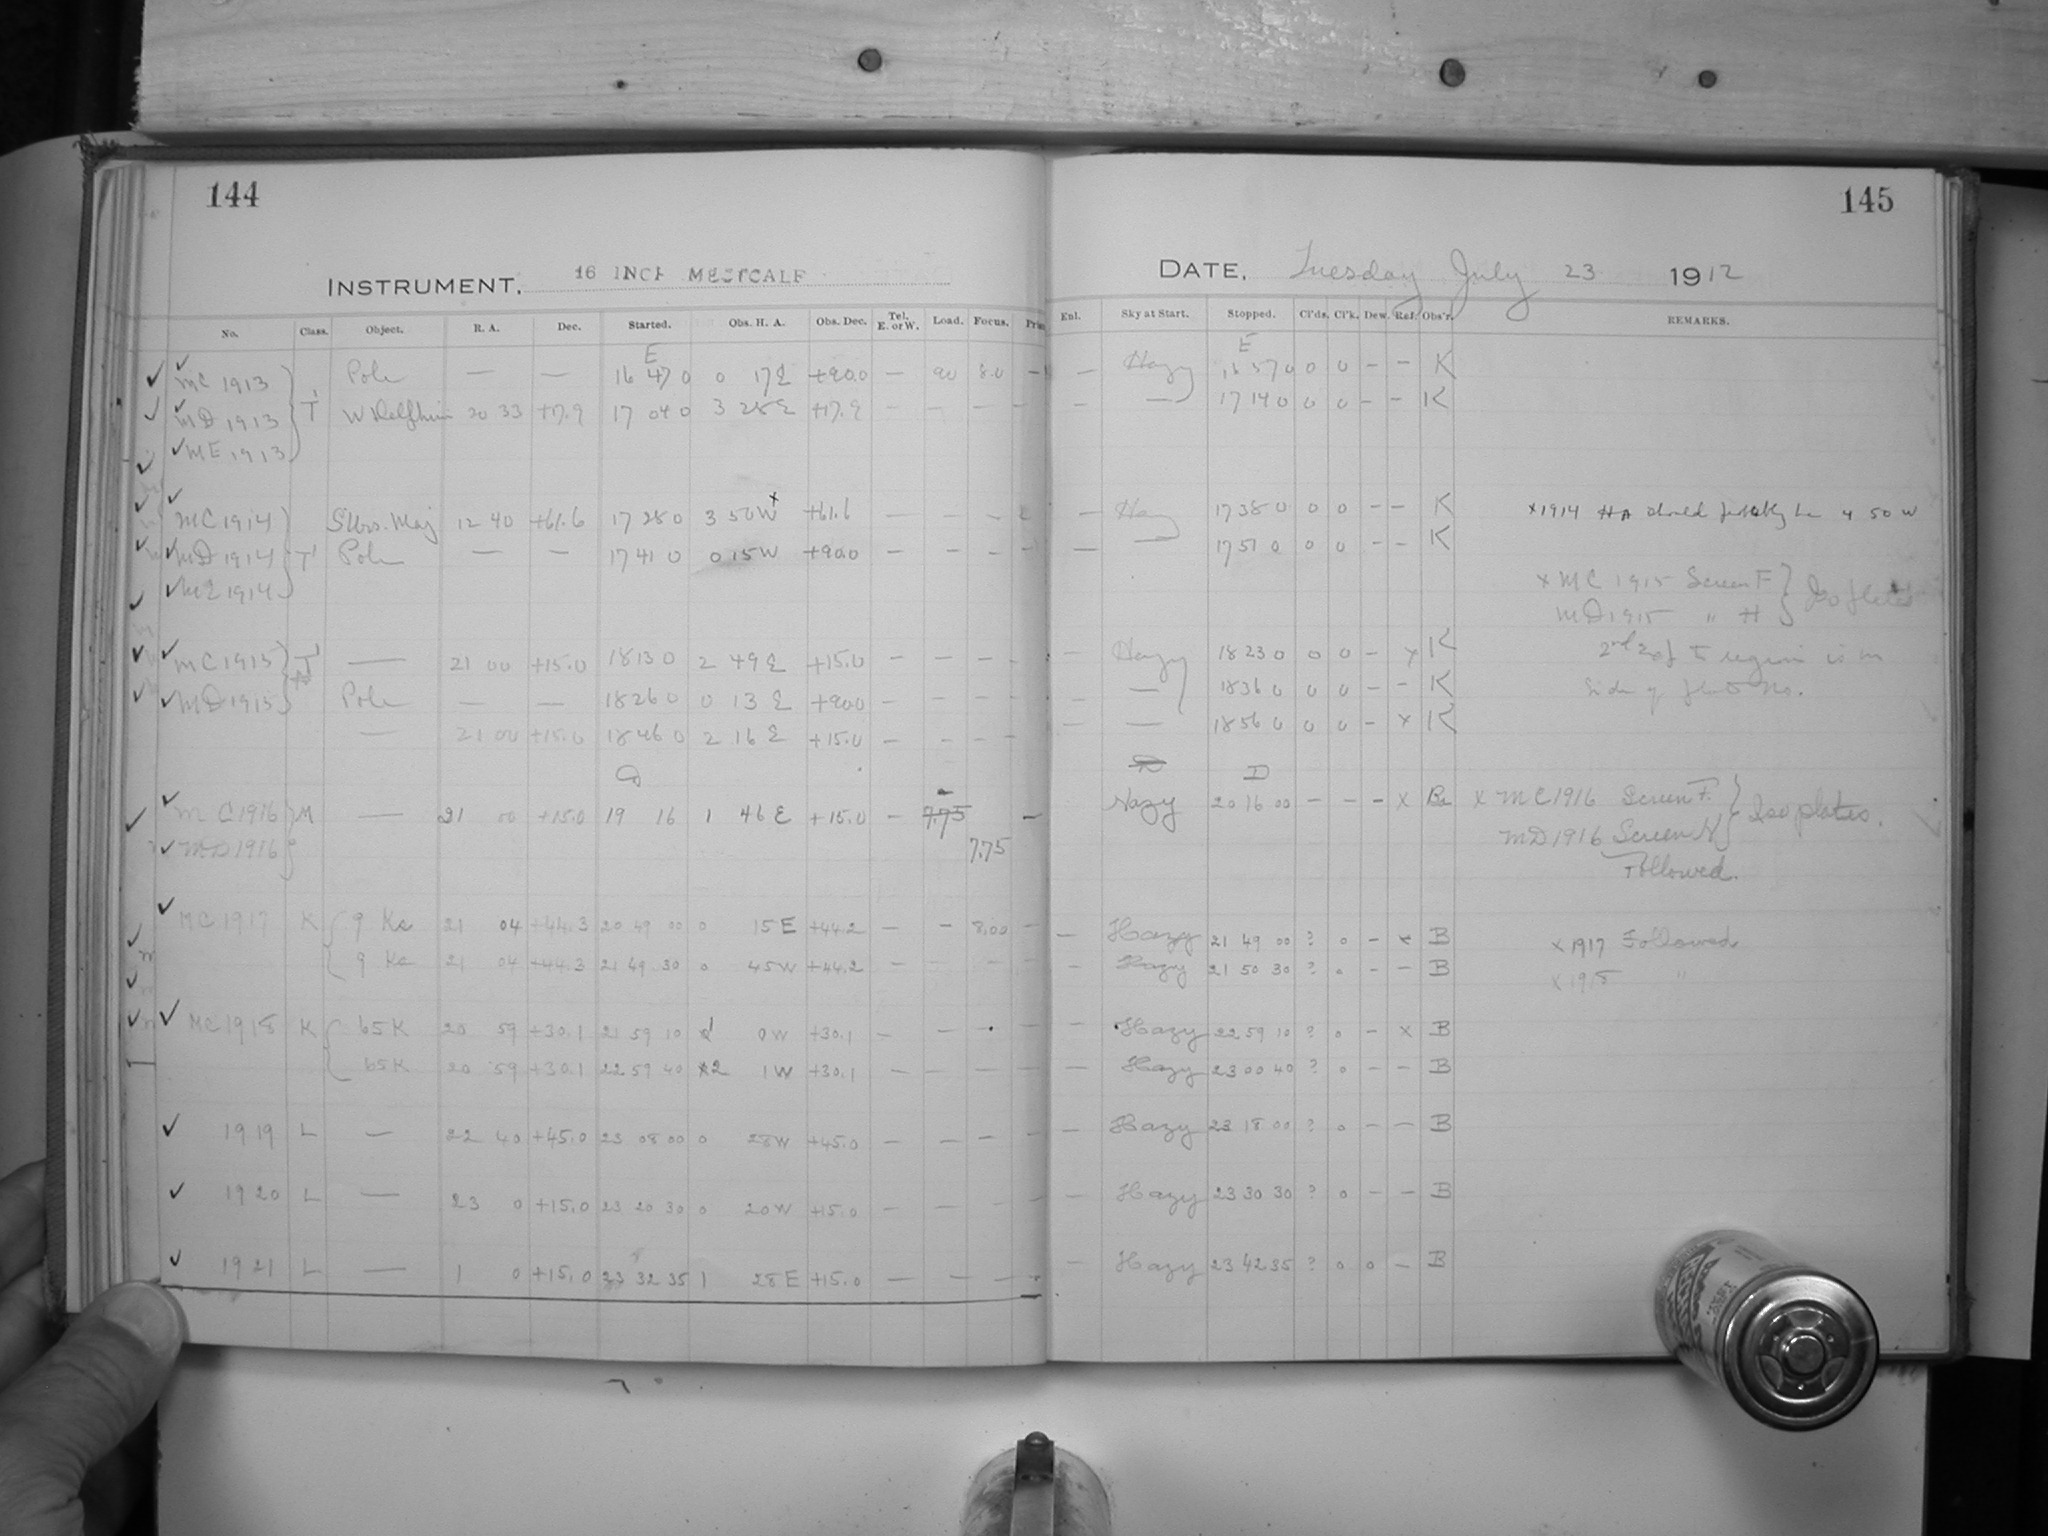 144
145
INSTRUMENT. 16 INCH METCALF
DATE, Tuesday July 23 1912
No. Class. Object. R. A. Dec. Started. Obs. H. A. Obs. Dec. Tel. E. or W. Load. Focus. Enl. Sky at Start. Stopped. Cl'ds. Cl'k. Dew. Ref. Obs'r. REMARKS.
E E
MC 1913 Pole — — 16 47 0 0 17 E +90.0 — 90 8.0 — — Hazy 16 57 0 0 0 — — K
MD 1913 T' W Delphini 20 33 +17.9 17 04 0 3 28 E +17.9 — — — — — — 17 14 0 0 0 — — K
ME 1913
MC 1914 S Urs. Maj 12 40 +61.6 17 28 0 3 50 W x +61.6 — — — — Hazy 17 38 0 0 0 — — K x 1914 HA should probably be 4 50 W
MD 1914 T' Pole — — 17 41 0 0 15 W +90.0 — — — — — — 17 51 0 0 0 — — K
ME 1914
x MC 1915 Screen F } Iso plates
MD 1915 " H
MC 1915 T' — 21 00 +15.0 18 13 0 2 49 E +15.0 — — — — — Hazy 18 23 0 0 0 — x K
MD 1915 Pole — — 18 26 0 0 13 E +90.0 — — — — — — 18 36 0 0 0 — — K
— 21 00 +15.0 18 46 0 2 16 E +15.0 — — — — — — 18 56 0 0 0 — x K
2nd of region is in
side of No.
D D
MC 1916 M — 21 00 +15.0 19 16 1 46 E +15.0 — 7.75 — Hazy 20 16 00 — — — x Ba x MC 1916 Screen F. } Iso plates.
MD 1916 7.75 MD 1916 Screen H
Followed.
MC 1917 K 9 Kc 21 04 +44.3 20 49 00 0 15 E +44.2 — — 8.00 — — Hazy 21 49 00 ? 0 — x B x 1917 Followed
9 Kc 21 04 +44.3 21 49 30 0 45 W +44.2 — — — — — Hazy 21 50 30 ? 0 — — B x 1918 "
MC 1918 K 65 K 20 59 +30.1 21 59 10 1 0 W +30.1 — — — — Hazy 22 59 10 ? 0 — x B
65 K 20 59 +30.1 22 59 40 2 1 W +30.1 — — — — — Hazy 23 00 40 ? 0 — — B
1919 L — 22 40 +45.0 23 08 00 0 28 W +45.0 — — — — — Hazy 23 18 00 ? 0 — — B
1920 L — 23 0 +15.0 23 20 30 0 20 W +15.0 — — — — — Hazy 23 30 30 ? 0 — — B
1921 L — 1 0 +15.0 23 32 35 1 28 E +15.0 — — — — — Hazy 23 42 35 ? 0 0 — B